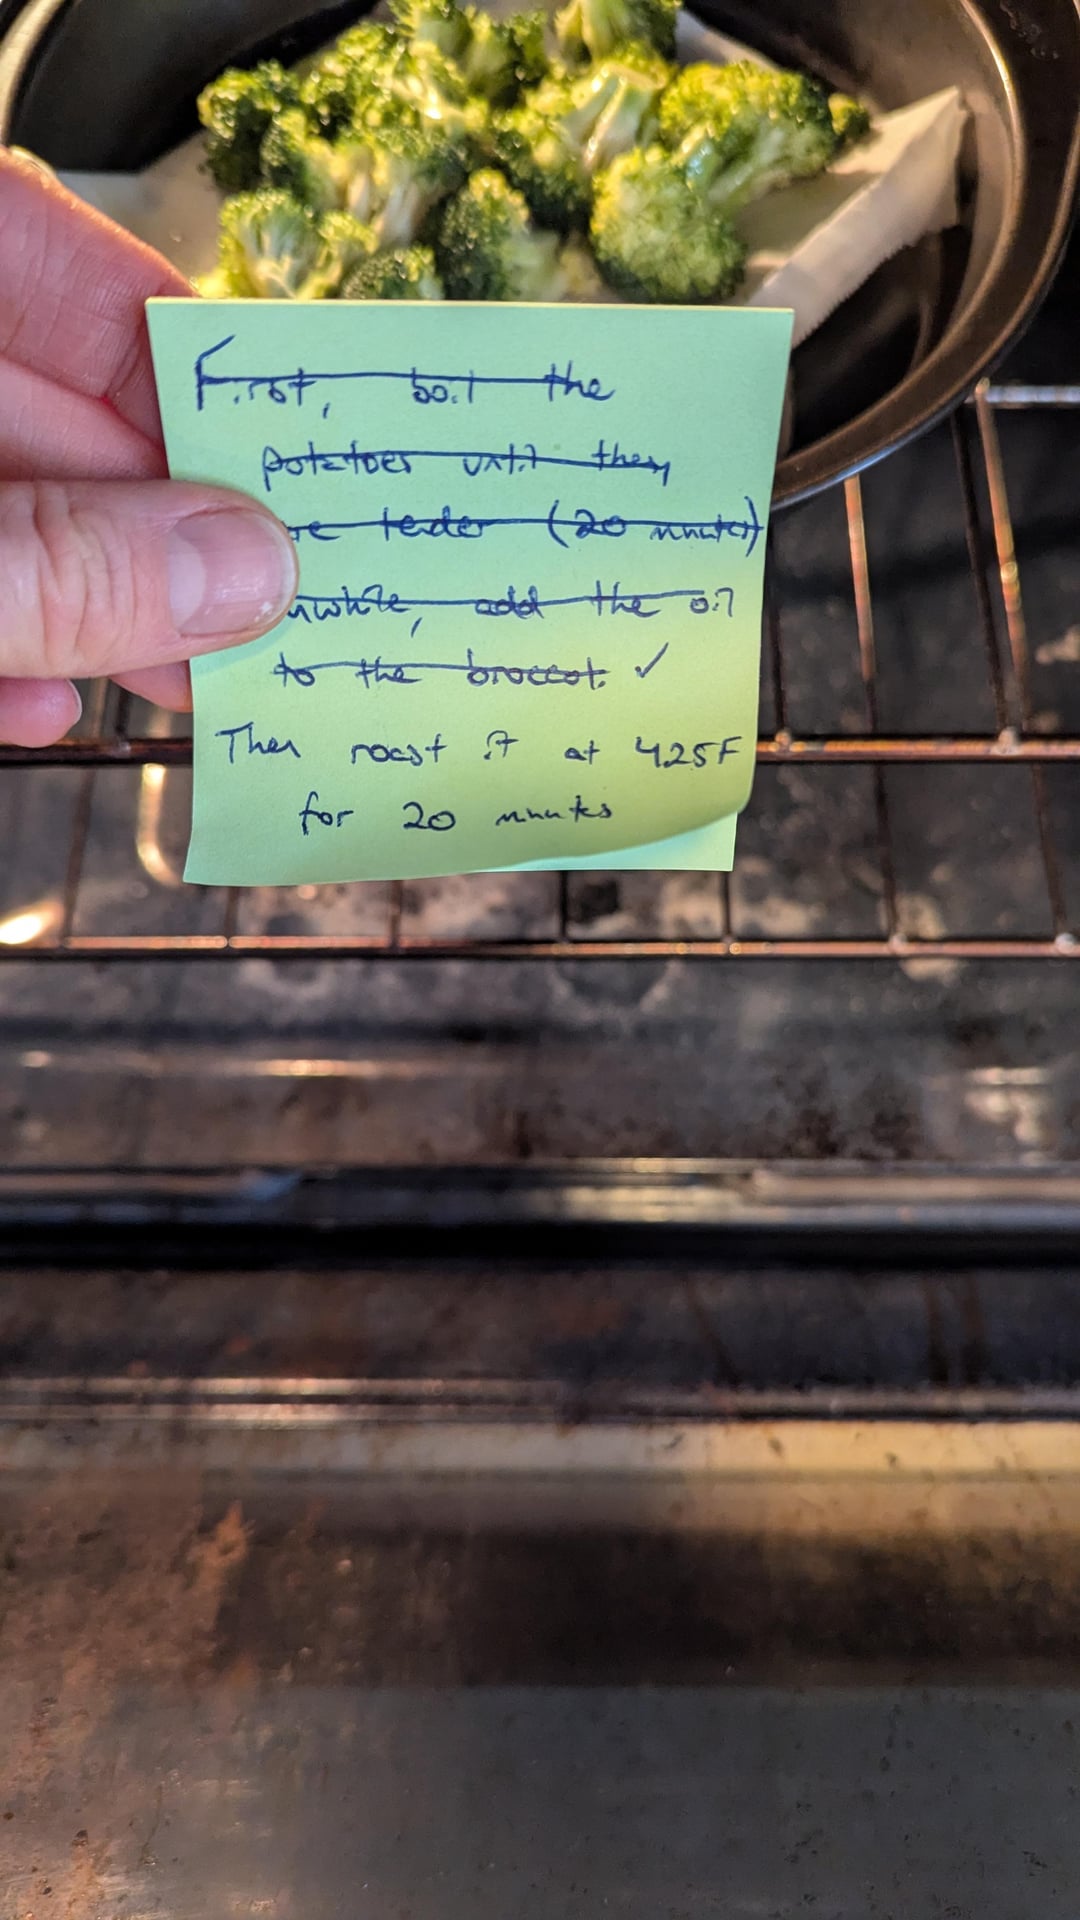 First, boil the
potatoes until they
re tender (20 minutes)
nwhile, add the oil
to the broccoli ✓
Then roast it at 425F
for 20 minutes